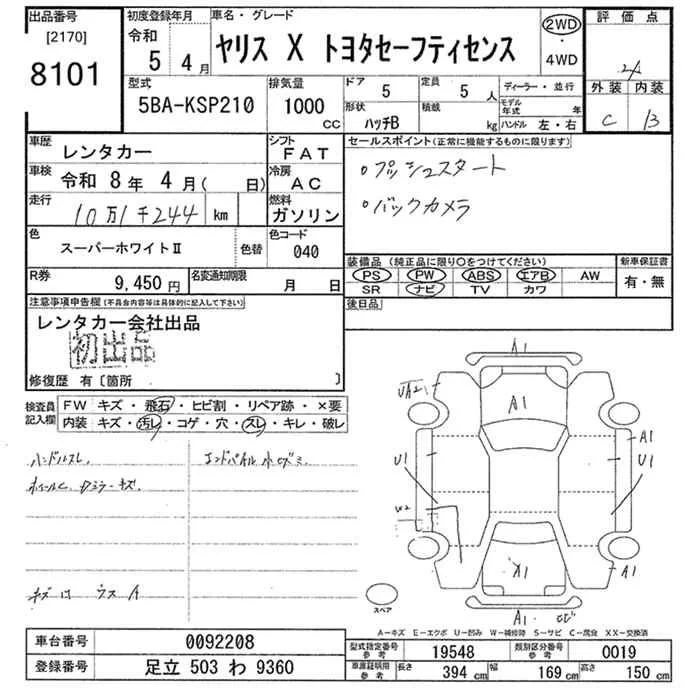 出品番号
[2170]
8101
初度登録年月
令和
5 4月
車名・グレード
ヤリス X トヨタセーフティセンス
2WD
・
4WD
評価点
外装 内装
C B
型式
5BA-KSP210
排気量
1000
CC
ドア
5
定員
5 人
形状
ハッチB
積載
kg
ディーラー・並行
モデル年式 年
ハンドル 左・右
車歴
レンタカー
車検
令和 8年 4月( 日)
走行
10万1千244 km
シフト
FAT
冷房
AC
燃料
ガソリン
色
スーパーホワイトⅡ
色替
色コード
040
R券
9,450 円
名変通知期限
月 日
セールスポイント(正常に機能するものに限ります)
。プッシュスタート
。バックカメラ
装備品(純正品に限り○をつけてください)
PS PW ABS エアB AW
SR ナビ TV カワ
新車保証書
有・無
後日品
注意事項申告欄(不具合内容等は具体的に記入して下さい)
レンタカー会社出品
初出品
修復歴 有〔箇所 〕
検査員記入欄
FW キズ・飛石・ヒビ割・リペア跡・×要
内装 キズ・汚レ・コゲ・穴・スレ・キレ・破レ
ハンドルスレ
キズ
A1
A1
UA2
A1
U1
U1
W2
A1
A1
A1
スペア
A-キズ E-エクボ U-凹み W-補修跡 S-サビ C-腐食 XX-交換済
車台番号 0092208
登録番号 足立 503 わ 9360
型式指定番号 参考 19548
類別区分番号 参考 0019
車庫証明用 参考 長さ 394 cm 幅 169 cm 高さ 150 cm